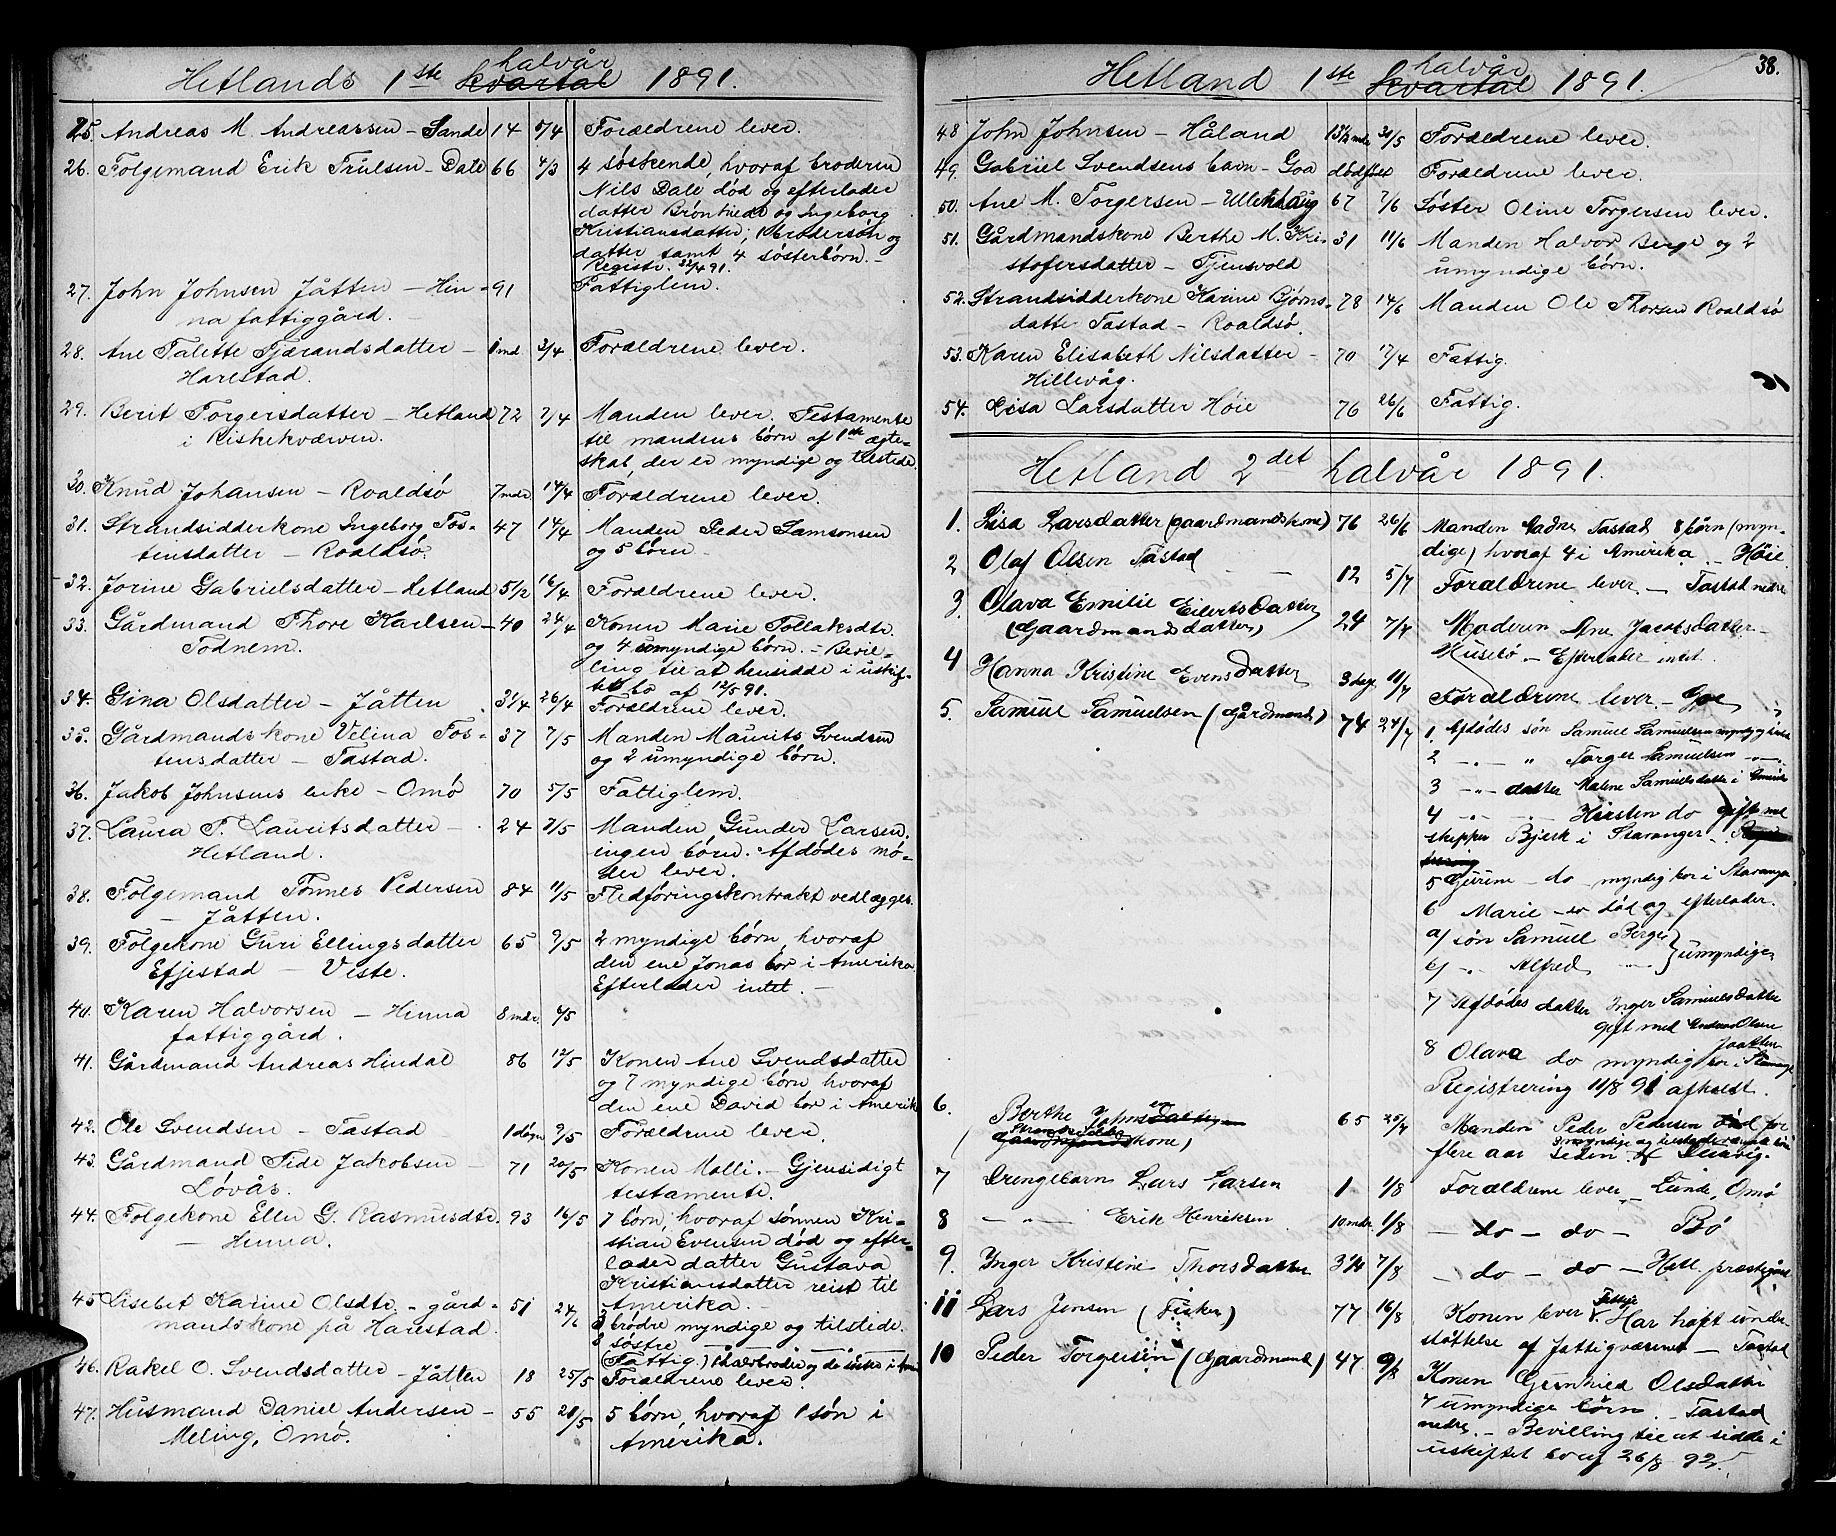 Hetlands 1ste kvartal halvår 1891.
25. Andreas M. Andreassen - Sande 14 5/4 Forældrene lever.
26. Folgemand Erik Trulsen - Dale 66 4/3 4 søskende, hvoraf broderen
Nils Dale død og efterlader
datter Brønhilde og Ingeborg
Kristiansdatter; 1 brodersøn og
datter samt 4 søsterbörn. -
Registr. 22/4 91.
27. John Johnsen Jåtten - Hin- 91 Fattiglem.
na fattiggård. -
28. Ane Talette Tjærandsdatter - 1 md 3/4 Forældrene lever.
Harestad.
29. Berit Torgersdatter - Hetland 72 7/4 Manden lever. Testamente
i Riskekværven. til mandens børn af 1ste ægte-
skab, der er myndige og tilstede.
30. Knud Johansen - Roaldsö 7 mdr 14/4 Forældrene lever.
31. Strandsidderkone Ingeborg Tos- 47 14/4 Manden Peder Samsonsen
tensdatter - Roaldsö. og 5 börn -
32. Jorine Gabrielsdatter - Hetland 5 1/2 16/4 Forældrene lever.
33. Gårdmand Thore Karlsen - 40 24/4 Konen Marie Tollaksdtr.
Todnem. og 4 umyndige börn. - Bevil-
ling til at hensidde i uskif-
tet bo af 12/5 91.
34. Gina Olsdatter - Jåtten 3 1/4 26/4 Forældrene lever.
35. Gårdmandskone Velina Tos- 37 7/5 Manden Maurits Svendsen
tensdatter - Tastad. og 2 umyndige börn.
36. Jakob Johnsens enke - Omö 70 5/5 Fattiglem.
37. Laura T. Lauritsdatter - 24 7/5 Manden, Gunder Larsen,
Hetland. ingen börn. Afdödes mo-
der lever.
38. Folgemand Tönnes Pedersen 84 11/5 Fledføringskontrakt vedlægges.
- Jåtten.
39. Folgekone Guri Ellingsdatter 65 9/5 2 myndige börn, hvoraf
Efjestad - Viste. den ene Jonas bor i Amerika
Efterlader intet. -
40. Karen Halvorsen - Hinna 8 mdr. 4/5
fattiggård.
41. Gårdmand Andreas Hindal 86 12/5 Konen Ane Svendsdatter
og 7 myndige börn hvoraf
den ene David bor i Amerik
42. Ole Svendsen - Tastad 1 døgn 9/5 Forældrene lever.
43. Gårdmand Tide Jakobsen - 71 20/5 Konen Malli. - Gjensidigt
Lövås. testamente.
44. Folgekone Ellen G. Rasmusdtr. 93 16/5 7 börn, hvoraf sønnen Kri-
- Hinna. stian Evensen död og efter-
lader datter Gustava
Kristiansdatter reist til
Amerika. -
45. Lisebet Karine Olsdtr. - gård- 51 24/6 3 brödre myndige og tilstede.
mandskone på Harestad. 2 søstre -
(Fattig.) 1 halvbroder og de søstre i Am
46. Rakel O. Svendsdatter - Jåtten 18 25/5 Forældrene lever.
47. Husmand Daniel Andersen - 55 28/5 5 börn, hvoraf 1 sön i
Meling, Omö. Amerika.
38.
Hetland 1ste kvartal halvår 1891.
48. John Johnsen - Håland 13 1/2 mdr 31/5 Forældrene lever.
49. Gabriel Svendsens barn - Goa dödfödt Forældrene lever.
50. Ane M. Torgersen - Ullenhaug 67 7/6 Söster Oline Torgersen lever.
51. Gårdmandskone Berthe M. Kri- 31 11/6 Manden Halvor Berge og 2
stofersdatter - Tjensvold umyndige börn.
52. Strandsidderkone Karine Bjørns- 78 14/6 Manden Ole Thorsen Roaldsö
datter Tastad - Roaldsö.
53. Karen Elisabeth Nilsdatter - 70 17/4 Fattig.
Hillevåg.
31
54. Lisa Larsdatter Höie 76 26/6 Fattig.
Hetland 2det halvår 1891.
1. Lisa Larsdatter (gaardmandskone) 76 26/6 Manden Tastad 8 börn (myn-
dige) hvoraf 4 i Amerika - Höie
2 Olaf Olsen Tastad 12 5/7 Forældrene lever - Tastad nedre
3. Olava Emilie Eilertsdatter 24 7/7 Moderen Ane Jacobsdatter -
(Gaardmandsdatter) Husebö - Efterlader intet.
4 Hanna Kristine Evensdatter 3 dage 11/7 Forældrene lever. - Goe
5. Samuel Samuelsen (Gårdmand) 74 24/7 1. Afdödes sön Samuel Samuelsen
2 - " - " Torger Samuelsen - " -
3 - " - datter Malene Samuelsdatter i
4 - " - Kirsten do gift med
skipper Bjerk i Stavanger.
5 Gurine - do - myndig bor i Stavanger
6 Marie - do död og efterlader.
a) sön Samuel Berge } umyndige
b) " Alfred - " -
7 Afdödes datter Inger Samuelsdatter
gift med Olsen
Jaatten
8 Olava do myndig bor i Stavanger
Registrering 11/8 91 afholdt.
6. Berthe Johnsen 65 25/7 Manden Peder Pedersen död for
(Strandsidder gaardmandskone) flere aar siden.
7 Drengebarn Lars Larsen 1 1/8 Forældrene lever - Lunde, Omö
8 - " - Erik Henriksen 10 mdr 1/8 - do - do - Bö
9. Inger Kristine Thorsdatter 3 1/4 7/8 - do - do - Hetl. præstegård
11 Lars Jensen (Fisker) 77 16/8 Konen lever Fattig. Har havt under
støttelse af Fattigvæsenet - Tastad
10 Peder Torgersen (Gaardmand) 47 9/8 Konen Gunhild Olsdatter
7 umyndige börn. - Tastad
nedre. - Bevilling til at sidde i
uskiftet bo af 26/8 92.